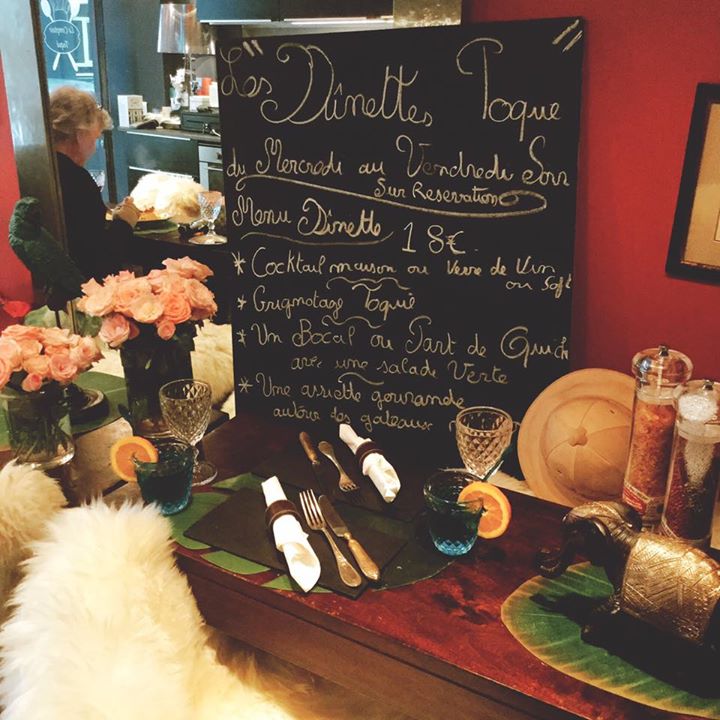 Les Dînettes Toque
du Mercredi au Vendredi Soir
Sur Reservation
Menu Dînette 18€
* Cocktail maison ou Verre de Vin
ou Soft
* Grignotage Toqué
* Un Bocal ou Part de Quich
avec une salade Verte
* Une assiette gourande
autour des gateaux